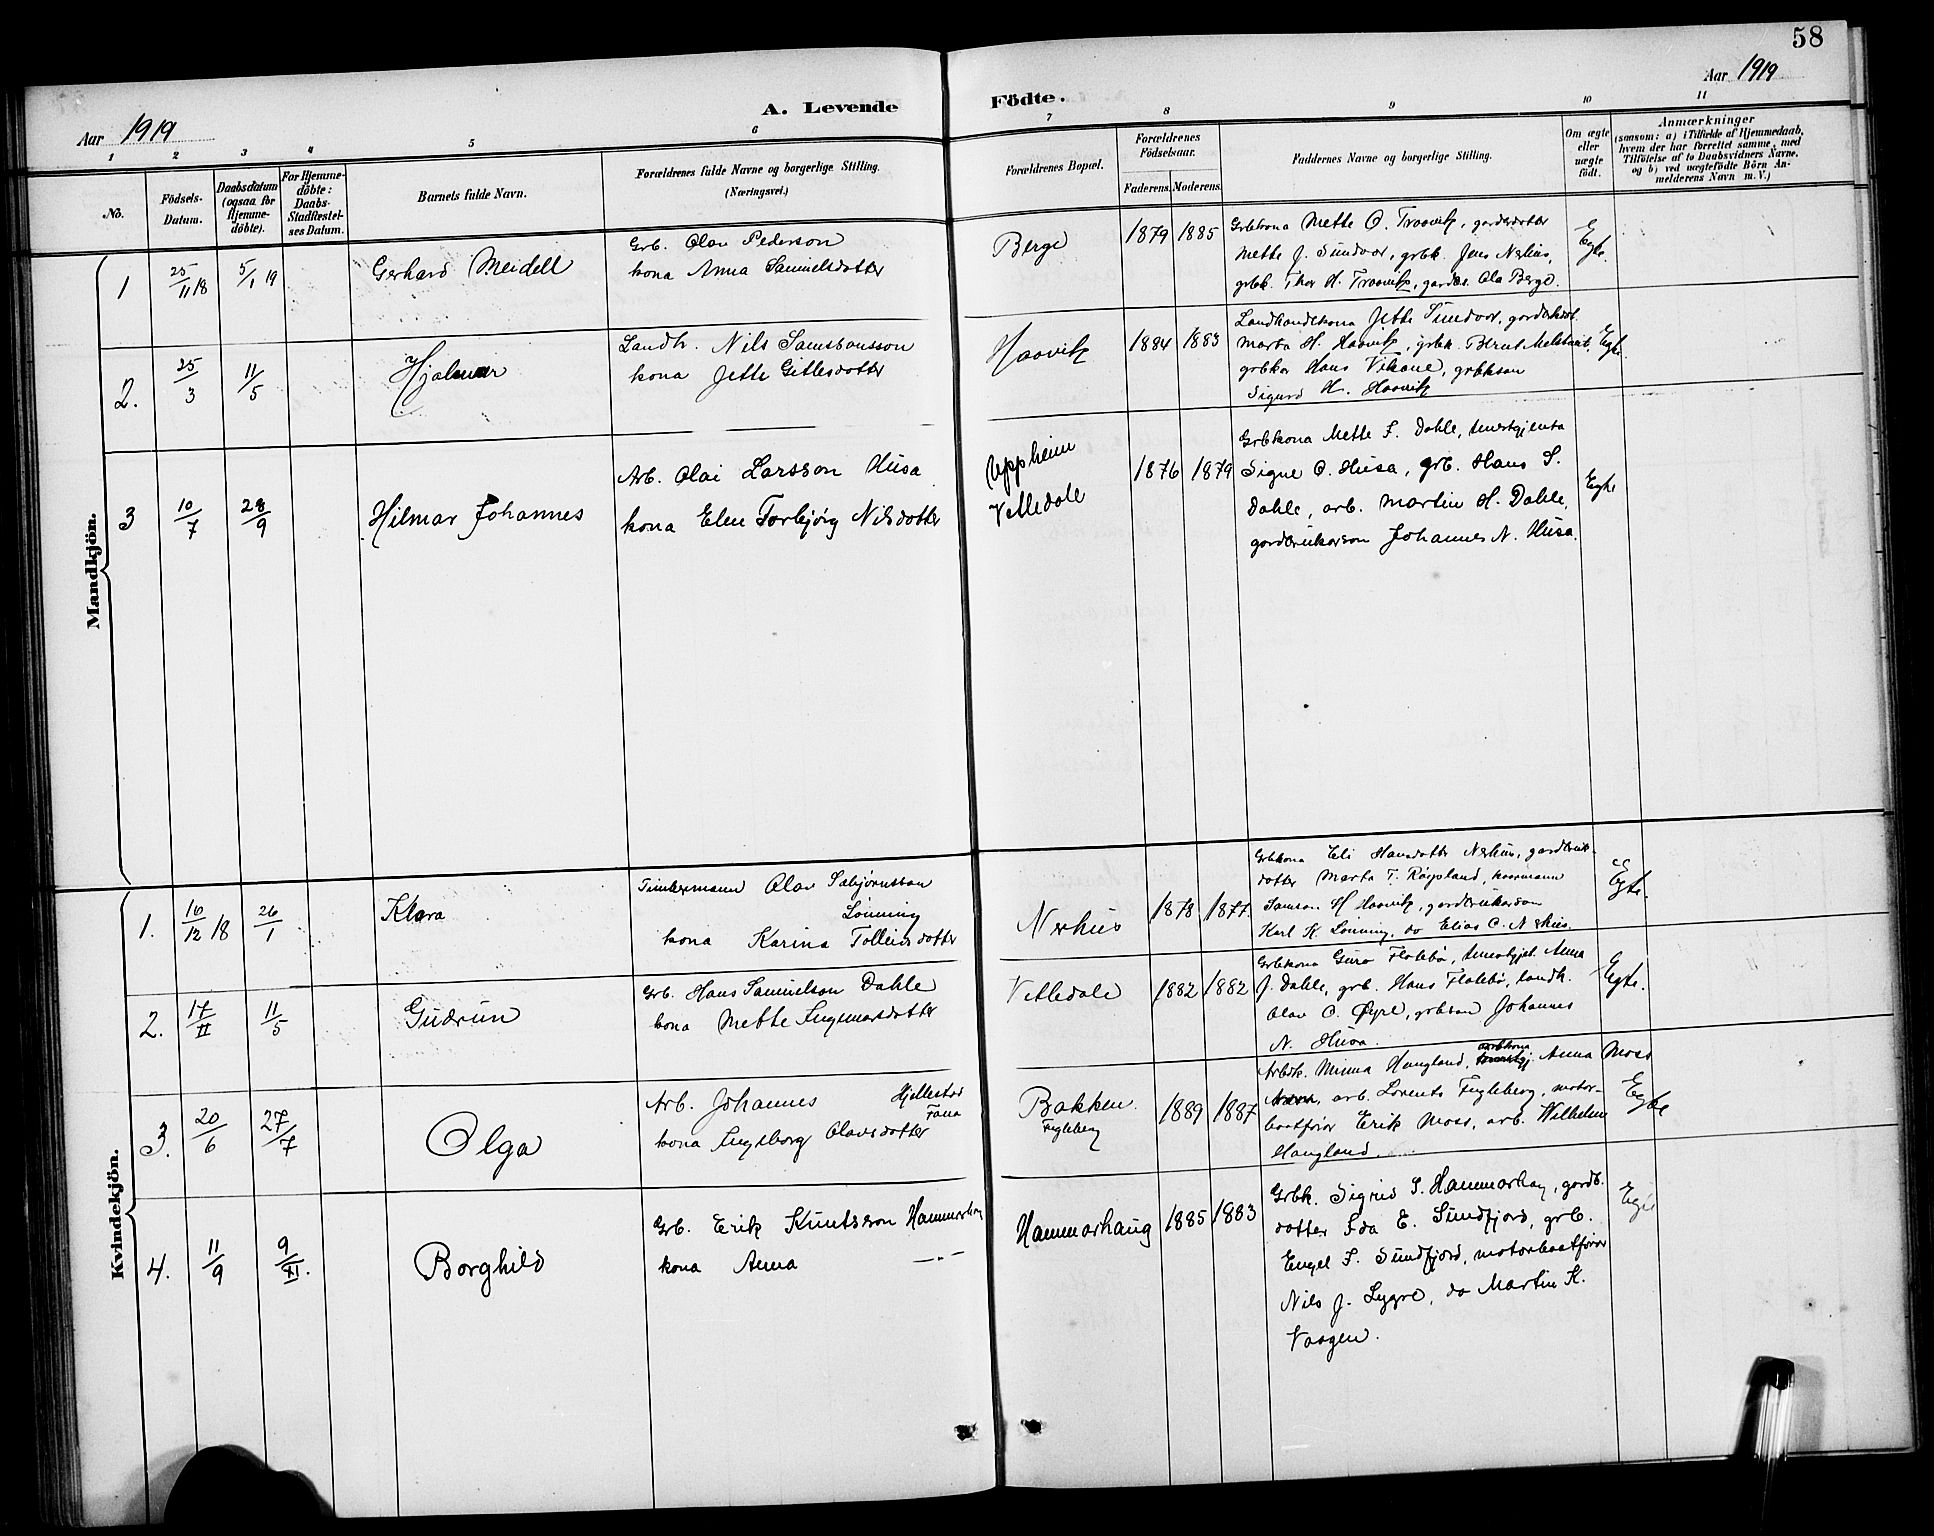 58
Aar 1919
A. Levende Födte.
Aar 1919
1 2 3 4 5 6 7 8 9 10 11
No.
Födsels-
Datum.
Daabsdatum
(ogsaa for
Hjemme-
döbte).
For Hjemme-
döbte:
Daabs-
Stadfæstel-
ses Datum.
Barnets fulde Navn.
Forældrenes fulde Navne og borgerlige Stilling.
(Næringsvei.)
Forældrenes Bopæl.
Forældrenes
Födselsaar.
Faderens. Moderens.
Faddernes Navne og borgerlige Stilling.
Om ægte
eller
uægte
födt.
Anmærkninger
(saasom: a) i Tilfælde af Hjemmedaab,
hvem der har forrettet samme, med
Tilföielse af to Daabsvidners Navne,
og b) ved uægtefödte Börn An-
melderens Navn m. V.)
Mandkjön.
1 25/11 18 5/1 19 Gerhard Meidell
Grb. Olav Pederson
kona Anna Samuelsdotter
Berge 1879 1885
Grbkona Mette O. Traavik, gardsdotter
Mette J. Sundvor, grbk. Jens Nerhus,
grbk. Thor H. Traavik, gardss. Ola Berge.
Egte.
2. 25/3 11/5 Hjalmar
Landh. Nils Samsonsson
kona Jette Gitlesdotter
Haavik 1884 1883
Landhandlkona Jette Sundvor,
Marta H. Haavik, grbk.
grbkar Hans Vikane, grbkson
Sigurd H. Haavik
Egte.
3 10/7 28/9 Hilmar Johannes
Arb. Olai Larsson Husa
kona Elen Torbjørg Nilsdotter
Uppheim
Vetledale
1876 1879
Grbkona Mette F. Dahle, tenestgjenta
Signe O. Husa, grb. Hans S.
Dahle, arb. Martin H. Dahle,
gardbrukarson Johannes N. Husa.
Egte
Kvindekjön.
1. 10/12 18 26/1 Klara
Timbermann Olav Sæbjørnsson
Lønning
kona Karina Tolleivsdotter
Nerhus 1878 1877
Grbkona Eli Hansdotter Nerhus, gardbruk-
dotter Marta T. Røgsland,
Samson H Haavik, gardbrukarson
Karl K. Lønning, do Elias C. Nerhus.
Egte.
2. 17/II 11/5 Gudrun
Grb. Hans Samuelson Dahle
kona Mette Ingemarsdotter
Vetledale 1882 1882
Grbkona Guro Flatebø, tenestgjet. Anna
J. Dahle, grb. Hans Flatebø, landh.
Olav O. Øyre, grbson Johannes
N. Husa.
Egte.
3. 20/6 27/7 Olga
Arb. Johannes Hjellestad
Fana
kona Ingeborg Olavsdotter
Bakken
Fugleberg
1889 1887
Arbdk. Minna Haugland, Anna Moss
arb. Lorents Fugleberg, motor-
baatførar Erik Moss, arb. Wilhelm
Haugland.
Egte
4. 11/9 9/XI. Borghild
Grb. Erik Knutsson Hammarhaug
kona Anna —"—
Hammarhaug 1885 1883
Grbk. Sigrid S. Hammarhaug, gardb.
dotter Ida E. Sundfjord, grb.
Engel F. Sundfjord, motorbaatførar
Nils J. Lygre, do Martin K.
Vaagen.
Egte